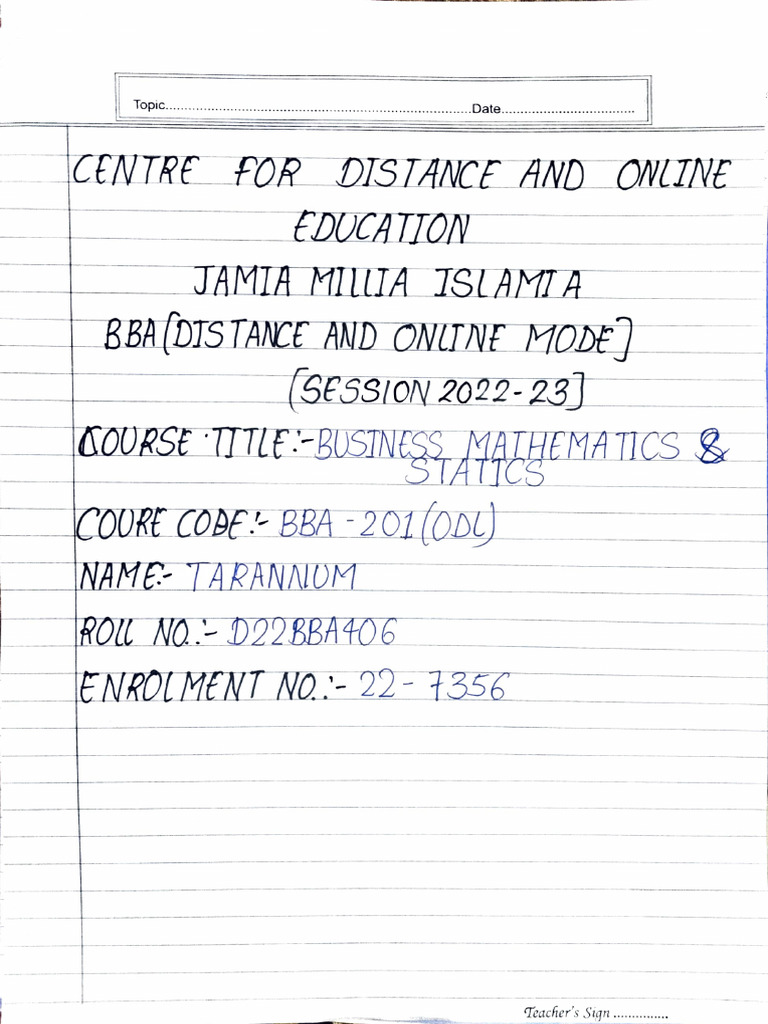 Topic..........................................................................................Date....................................
CENTRE FOR DISTANCE AND ONLINE
EDUCATION
JAMIA MILLIA ISLAMIA
BBA [DISTANCE AND ONLINE MODE]
[SESSION 2022-23]
COURSE TITLE:-BUSINESS MATHEMATICS &
STATICS
COURE CODE:- BBA -201(ODL)
NAME:- TARANNUM
ROLL NO.:- D22BBA406
ENROLMENT NO.:- 22-7356
Teacher's Sign ...............